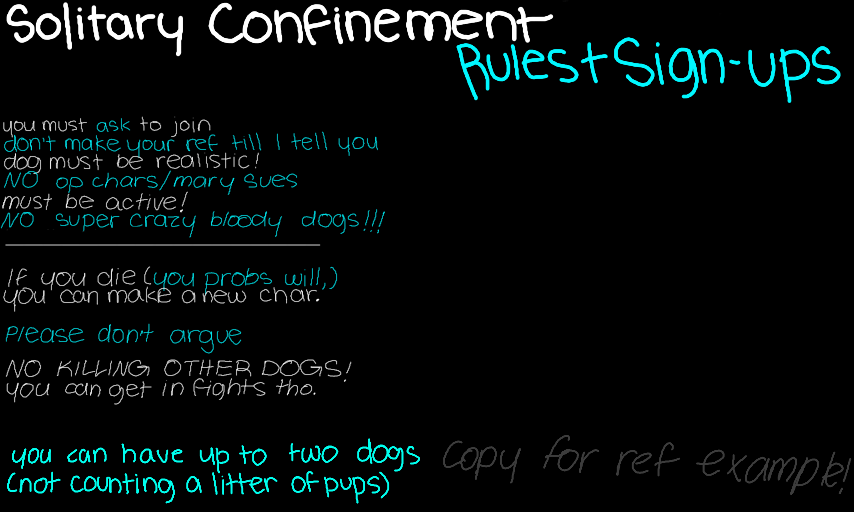 Solitary Confinement
Rules+Sign-ups
you must ask to join
don't make your ref till I tell you
dog must be realistic!
NO op chars/mary sues
must be active!
NO super crazy bloody dogs!!!
If you die (you probs will,)
you can make a new char.
Please don't argue
NO KILLING OTHER DOGS!
you can get in fights tho.
you can have up to two dogs
(not counting a litter of pups)
copy for ref example!